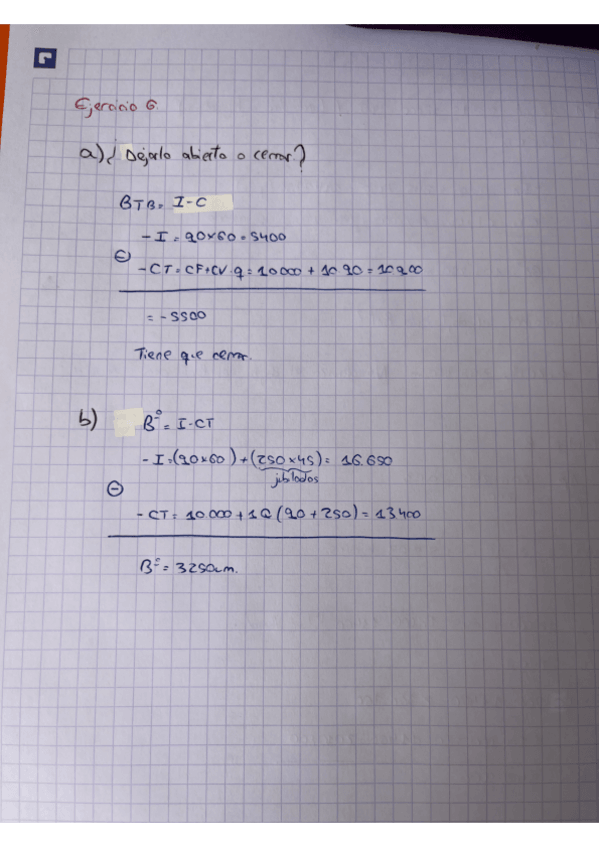 Ejercicio 6.
a) ¿Dejarlo abierto o cerrar?
BTB = I-C
- I = 90x60 = 5400
- CT = CF+CV·q = 10000 + 10·90 = 10900
= -5500
Tiene que cerrar.
b) Bº = I-CT
- I = (90x60) + (250x45) = 16.650
jubilados
- CT = 10.000 + 10 (90 + 250) = 13400
Bº = 3250um.